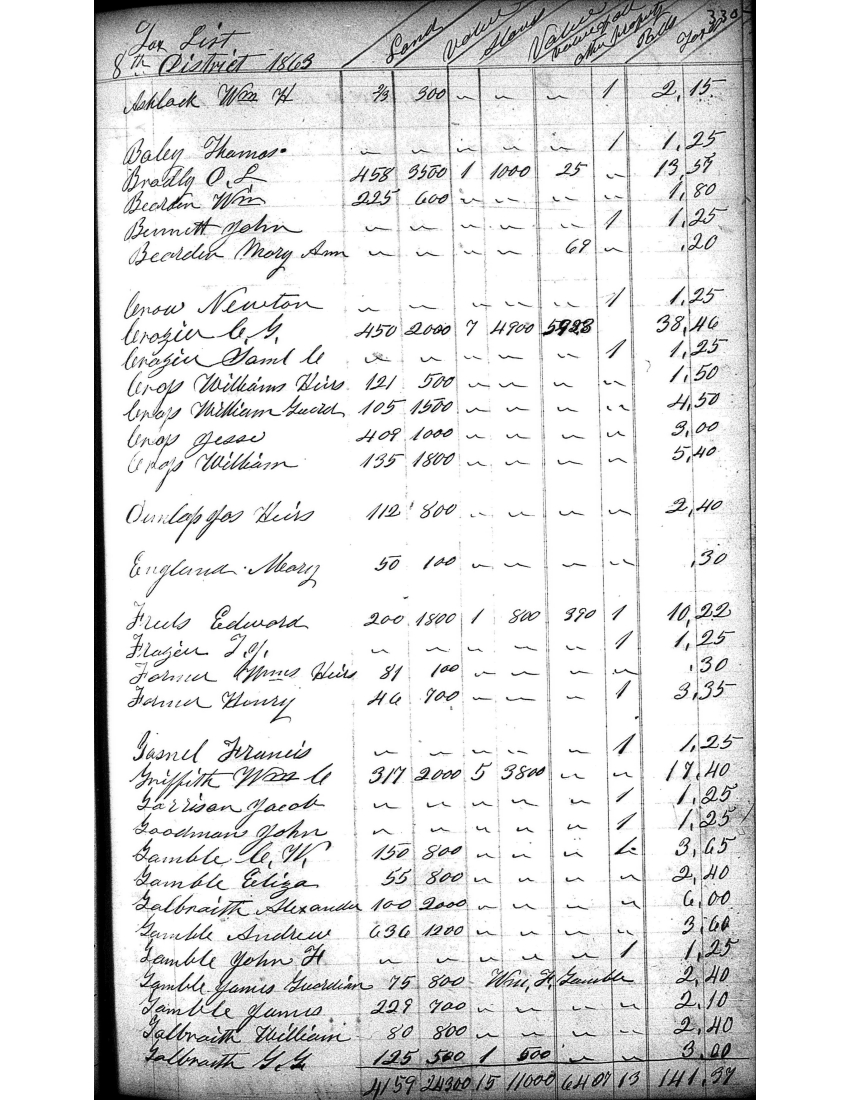 Tax List
8th District 1863
Land Value Slaves Value value of all other property Polls Taxes
330
Ashlock Wm H 2/3 300 " " " 1 2,15
Baley Thomas " " " " " 1 1,25
Bradly O. L 458 3500 1 1000 25 " 13,59
Bearden Wm 225 600 " " " " 1,80
Bennett John " " " " " 1 1,25
Bearden Mary Ann " " " " 69 " ,20
Crow Newton " " " " " 1 1,25
Crozier C. G. 450 2000 7 4900 5923 38,46
Crozier Saml C " " " " " 1 1,25
Cross Williams Heirs 121 500 " " " " 1,50
Cross William Guard 105 1500 " " " " 4,50
Cross Jesse 409 1000 " " " " 3,00
Cross William 135 1800 " " " " 5,40
Dunlap Jos Heirs 112 800 " " " " 2,40
England Mary 50 100 " " " " ,30
Freels Edward 200 1800 1 800 390 1 10,22
Frazier T. J. " " " " " 1 1,25
Farmer Wms Heirs 81 100 " " " " ,30
Farmer Henry 46 700 " " " 1 3,35
Gasnel Francis " " " " " 1 1,25
Griffith Wm C 317 2000 5 3800 " " 17,40
Garrison Jacob " " " " " 1 1,25
Goodman John " " " " " 1 1,25
Gamble C. W. 150 800 " " " 1 3,65
Gamble Eliza 55 800 " " " " 2,40
Galbraith Alexander 100 2000 " " " " 6,00
Gamble Andrew 636 1200 " " " " 3,60
Gamble John H " " " " " 1 1,25
Gamble James Guardian 75 800 Wm. H. Gamble 2,40
Gamble James 229 700 " " " " 2,10
Galbraith William 80 800 " " " " 2,40
Galbraith G. G. 125 500 1 500 " " 3,00
4159 24300 15 11000 6407 13 141,37